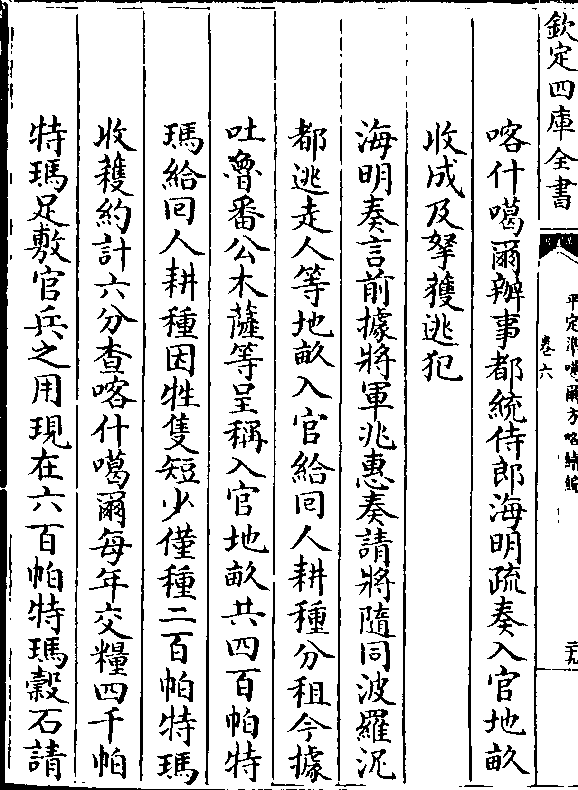 欽定四庫全書
平定準噶爾方略續編
卷六
三九
喀什噶爾辦事都統侍郎海明疏奏入官地畝
收成及拏獲逃犯
海明奏言前據將軍兆惠奏請將隨同波羅泥
都逃走人等地畝入官給回人耕種分租今據
吐魯番公木薩等呈稱入官地畝共四百帕特
瑪給回人耕種因牲隻短少僅種二百帕特瑪
收穫約計六分查喀什噶爾每年交糧四千帕
特瑪足敷官兵之用現在六百帕特瑪穀石請